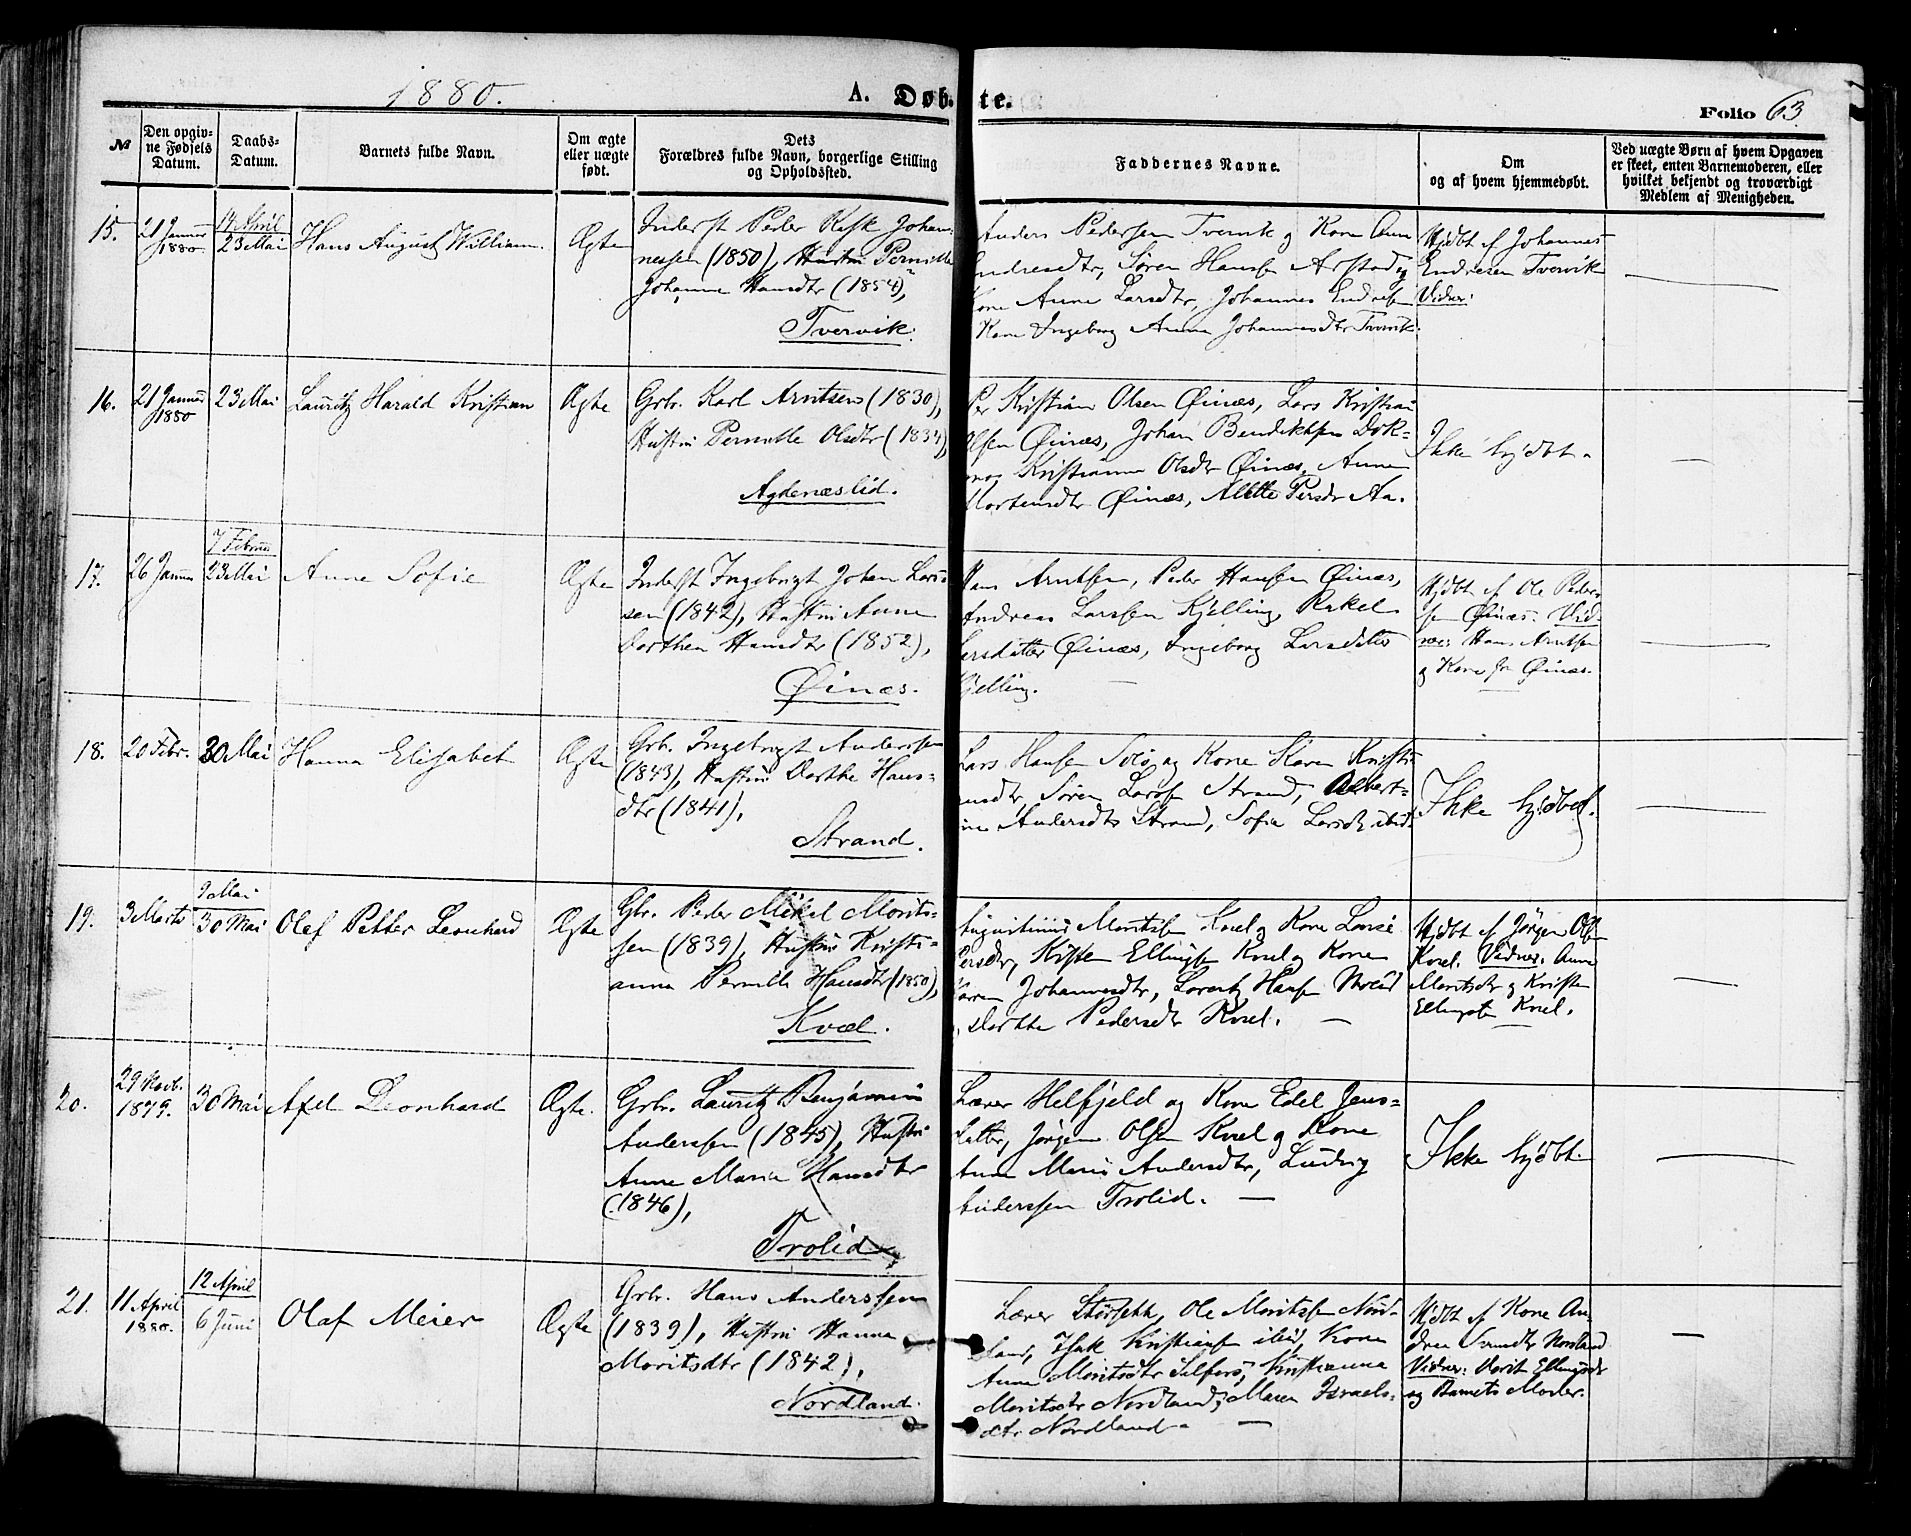 1880.
A. Døbte.
Folio 63.
№
Den opgiv-
ne Fødsels
Datum.
Daabs-
Datum.
Barnets fulde Navn.
Om ægte
eller uægte
født.
Dets
Forældres fulde Navn, borgerlige Stilling
og Opholdssted.
Faddernes Navne.
Om
og af hvem hjemmedøbt.
Ved uægte Børn af hvem Opgaven
er skeet, enten Barnemoderen, eller
hvilket bekjendt og troværdigt
Medlem af Menigheden.
15.
21 Januar
1880.
14 April
23 Mai
Hans August William
Ægte
Inderst Peder Johan-
nessen (1850), Hustru Pernille
Johanne Hansdtr (1854),
Tvervik.
Anders Pedersen Tvervik og Kone Anne
Endresdtr, Søren Hansen Arstad og
Kone Anne Larsdtr, Johannes Endresen
Kone Ingeborg Anna Johannesdtr Tvervik.
Hjdbt af Johannes
Endresen Tvervik
Vidner:
16.
21 Januar
1880
23 Mai
Lauritz Harald Kristian
Ægte
Grbr. Karl Arntsen (1830),
Hustru Pernille Olsdtr (1834),
Agdenæslid.
Per Kristian Olsen Øinæs, Lars Kristian
Olsen Øinæs, Johan Bendiktsen Dok-
mo, Kristianna Olsdtr Øinæs, Anne
Mortensdtr Øinæs, Alette Persdtr Aa.
Ikke hjdbt.
17.
26 Januar
7 Februar
23 Mai
Anne Sofie
Ægte
Inderst Ingebrigt Johan Lars-
sen (1842), Hustru Anne
Dorthea Hansdtr (1852),
Øinæs.
Hans Arntsen, Peder Hansen Øinæs,
Andreas Larssen Kjelling, Rakel
Larsdatter Øinæs, Ingeborg Larsdatter
Kjelling.
Hjdbt af Ole Peder-
sen Øinæs. Vid-
ner: Hans Arntsen
og Kone fr Øinæs.
18.
20 Febr.
30 Mai
Hanna Elisabet
Ægte
Grb. Ingebrigt Anderssen
(1843), Hustru Dorthe Hans-
dtr (1841),
Strand.
Lars Hansen og Kone Karen Kristi-
ansdtr, Søren Larsen Strand, Albert-
ine Andersdtr Strand, Sofie Larsdtr ibid.
Ikke hjdbt.
19.
3 Marts
9 Mai
30 Mai
Olaf Petter Leonhard
Ægte
Gbr. Peder Mikal Morits-
sen (1839), Hustru Kristi-
anna Pernille Hansdtr (1850),
Kvæl.
Augustinus Moritssen Kvæl og Kone Lovise
Persdtr, Kristen Ellingsen Kvæl og Kone
Karen Johannesdtr, Lorentz Hansen
Dorthea Pedersdtr Kvæl.
Hjdbt af Jørgen Olsen
Kvæl. Vidner: Anne
Moritsdtr og Kristen
Ellingsen Kvæl.
20.
29 Novb.
1879.
30 Mai
Axel Leonhard
Ægte.
Grbr. Lauritz Benjamin
Anderssen (1845), Hustru
Anne Maria Hansdtr
(1846),
Trolid
Lærer Helfjeld og Kone Edel Jens-
datter, Jørgen Olsen Kvæl og Kone
Anne Maria Andersdtr, Ludvig
Anderssen Trolid.
Ikke hjdbt.
21.
11 April
1880.
12 April
6 Juni
Olaf Meier
Ægte
Grbr. Hans Anderssen
(1839), Hustru Hanna
Moritsdtr (1842),
Nordland.
Lærer Ole Moritssen Nord-
land, Isak Kristiansen ibid, Kone
Anne Moritsdtr Selfors, Kristianna
Moritsdtr Nordland, Maren Israels-
dtr Nordland.
Hjdbt af Kone An-
drea Svendtr Nordland
Vidner: Berit Ellingsdtr
og Barnets Moder.